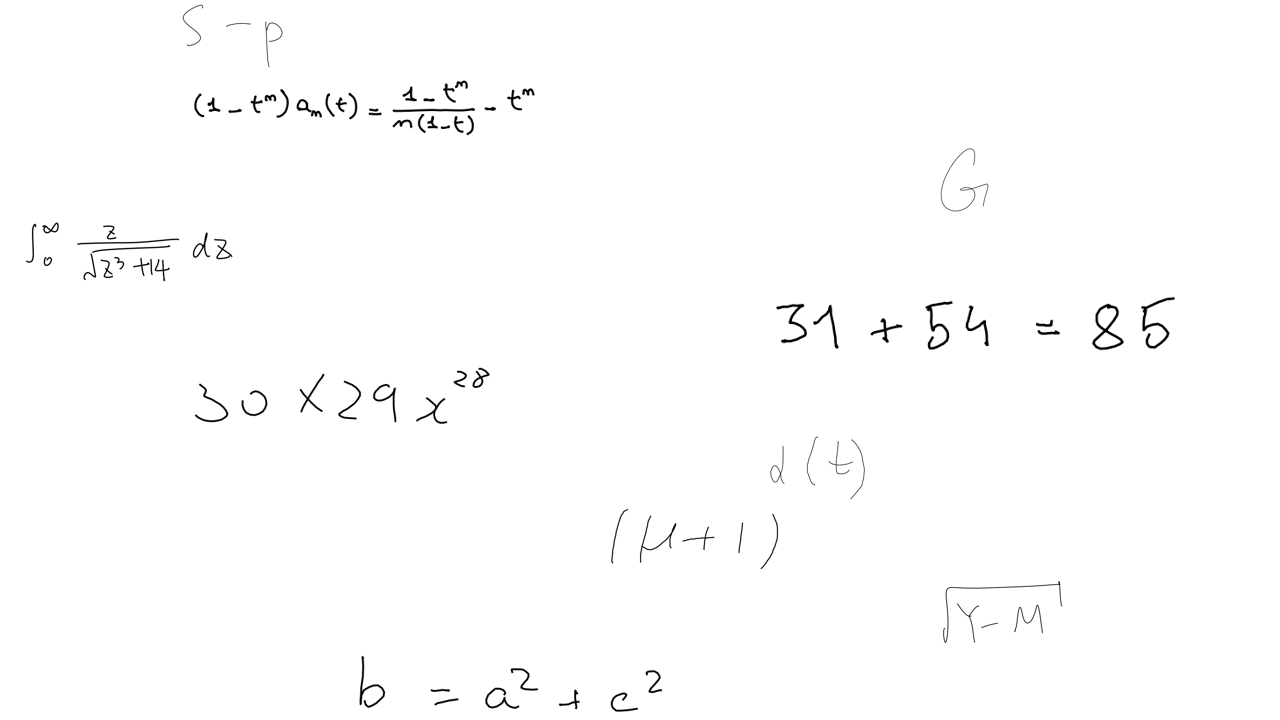 S - p
(1 - t^m) a_m(t) = \frac{1 - t^m}{m(1 - t)} - t^m
G
\int_0^\infty \frac{z}{\sqrt{z^3 + 14}} dz
31 + 54 = 85
30 × 29 x^{28}
d(t)
(μ + 1)
\sqrt{Y - M}
b = a^2 + c^2